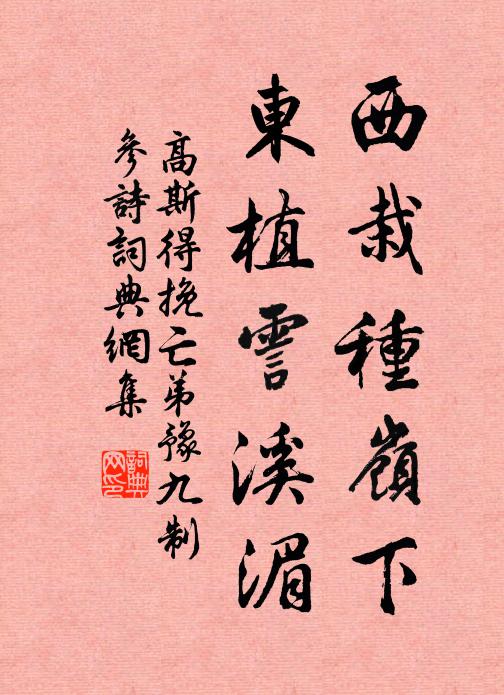 西栽種嶺下
東植霅溪湄
高斯得挽亡弟豫九制
參詩詞典網集
詩詞典网印